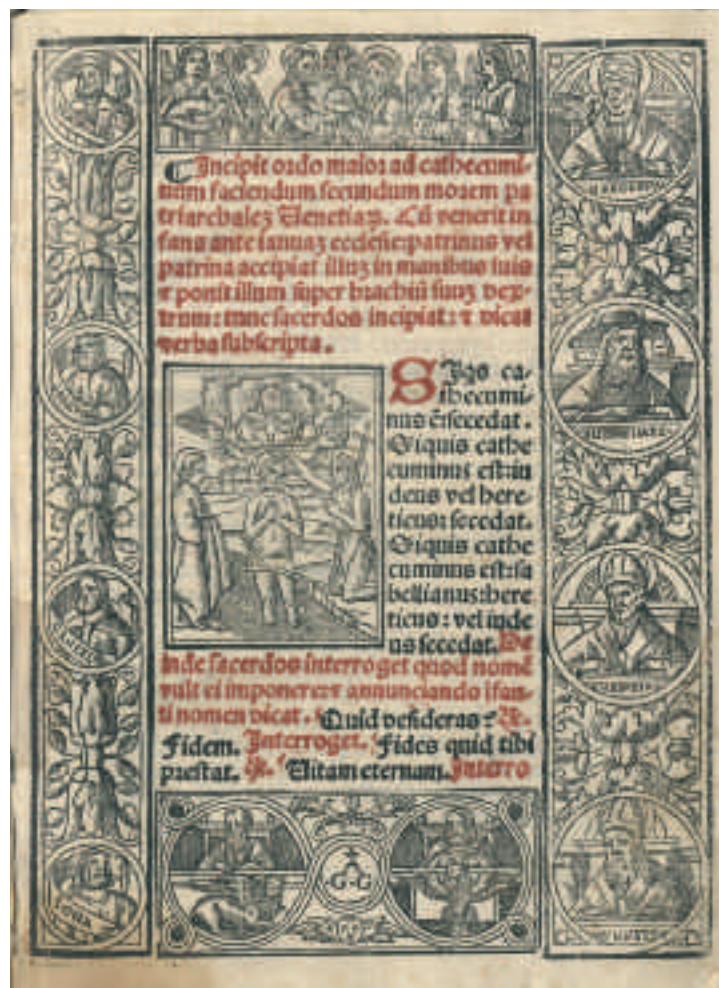 Incipit ordo maior ad cathecumi-
num faciendum secundum morem pa
triarchalez Venetiaꝝ. Cū venerit in
fans ante ianuaz ecclesie: patrinus vel
patrina accipiat illuz in manibus suis
⁊ ponit illum super brachiū suuz dex-
trum: tunc sacerdos incipiat: ⁊ dicat
verba subscripta.
SIqs ca-
thecumi-
nus ē: secedat.
Siquis cathe
cuminus est: iu
deus vel here
ticus: secedat.
Siquis cathe
cuminus est: sa
bellianus: here
ticus: vel iude
us secedat. De
inde sacerdos interroget quod nomē
vult ei imponere: ⁊ annunciando ifan-
ti nomen dicat. Quid desideras? ℟.
Fidem. Interroget. Fides quid tibi
prestat. ℟. Vitam eternam. Interro
G G